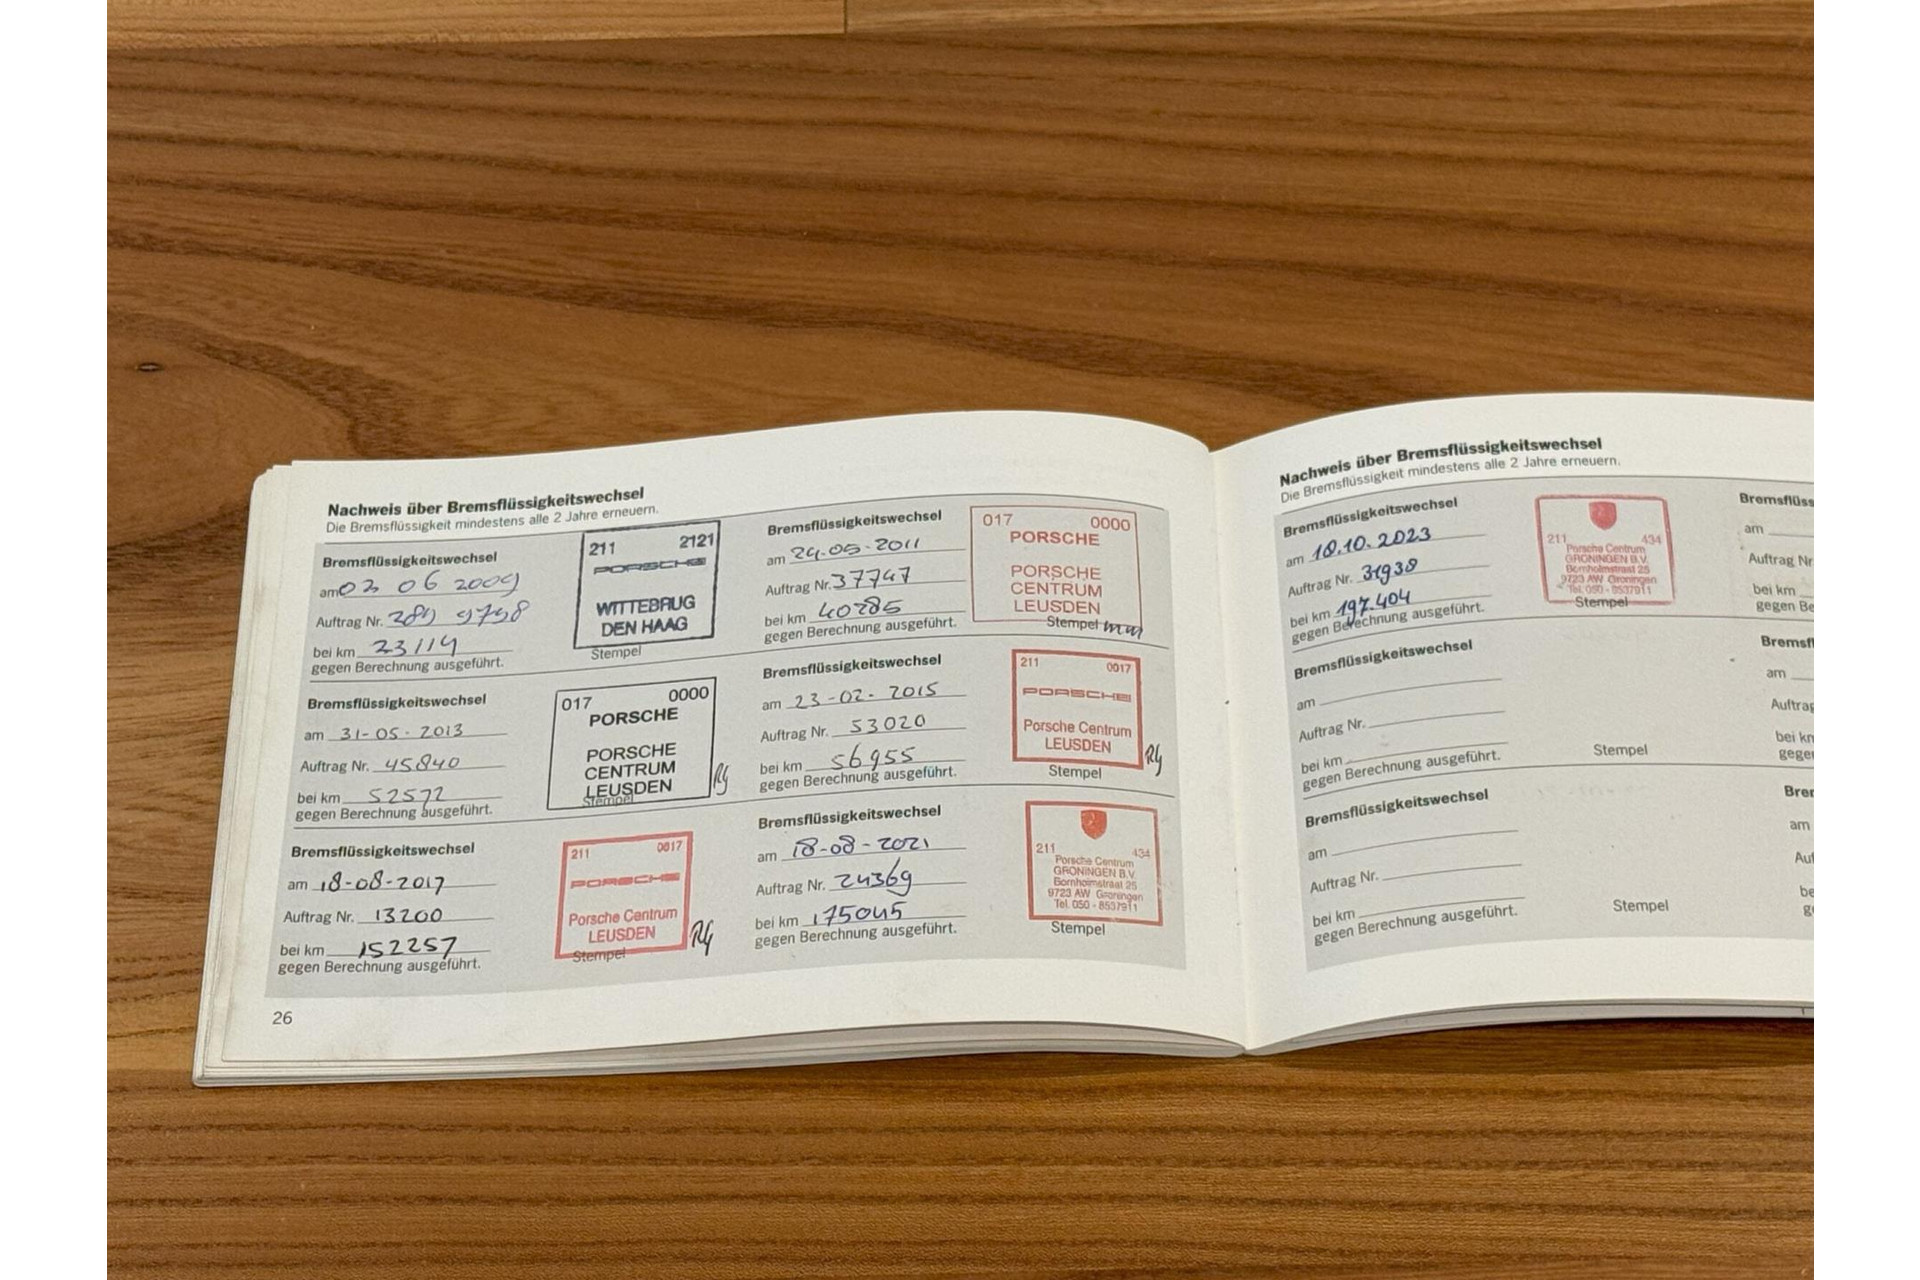 Nachweis über Bremsflüssigkeitswechsel
Die Bremsflüssigkeit mindestens alle 2 Jahre erneuern.
Bremsflüssigkeitswechsel
am 03 06 2009
Auftrag Nr. 289 9798
bei km 23114
gegen Berechnung ausgeführt.
211 2121
PORSCHE
WITTEBRUG
DEN HAAG
Stempel
Bremsflüssigkeitswechsel
am 24-05-2011
Auftrag Nr. 37747
bei km 40285
gegen Berechnung ausgeführt.
017 0000
PORSCHE
PORSCHE
CENTRUM
LEUSDEN
Stempel
Bremsflüssigkeitswechsel
am 31-05-2013
Auftrag Nr. 45840
bei km 52572
gegen Berechnung ausgeführt.
017 0000
PORSCHE
PORSCHE
CENTRUM
LEUSDEN
Stempel
Bremsflüssigkeitswechsel
am 23-02-2015
Auftrag Nr. 53020
bei km 56955
gegen Berechnung ausgeführt.
211 0017
PORSCHE
Porsche Centrum
LEUSDEN
Stempel
Bremsflüssigkeitswechsel
am 18-08-2017
Auftrag Nr. 13200
bei km 152257
gegen Berechnung ausgeführt.
211 0017
PORSCHE
Porsche Centrum
LEUSDEN
Stempel
Bremsflüssigkeitswechsel
am 18-08-2021
Auftrag Nr. 24369
bei km 175045
gegen Berechnung ausgeführt.
211 434
Porsche Centrum
GRONINGEN B.V.
Bornholmstraat 25
9723 AW Groningen
Tel. 050 - 8537911
Stempel
26
Nachweis über Bremsflüssigkeitswechsel
Die Bremsflüssigkeit mindestens alle 2 Jahre erneuern.
Bremsflüssigkeitswechsel
am 18.10.2023
Auftrag Nr. 31938
bei km 197.404
gegen Berechnung ausgeführt.
211 434
Porsche Centrum
GRONINGEN B.V.
Bornholmstraat 25
9723 AW Groningen
Tel. 050 - 8537911
Stempel
Bremsflüss
am
Auftrag Nr
bei km
gegen Be
Bremsflüssigkeitswechsel
am
Auftrag Nr.
bei km
gegen Berechnung ausgeführt.
Stempel
Bremsfl
am
Auftrag
bei kn
gege
Bremsflüssigkeitswechsel
am
Auftrag Nr.
bei km
gegen Berechnung ausgeführt.
Stempel
Brer
am
Au
be
g